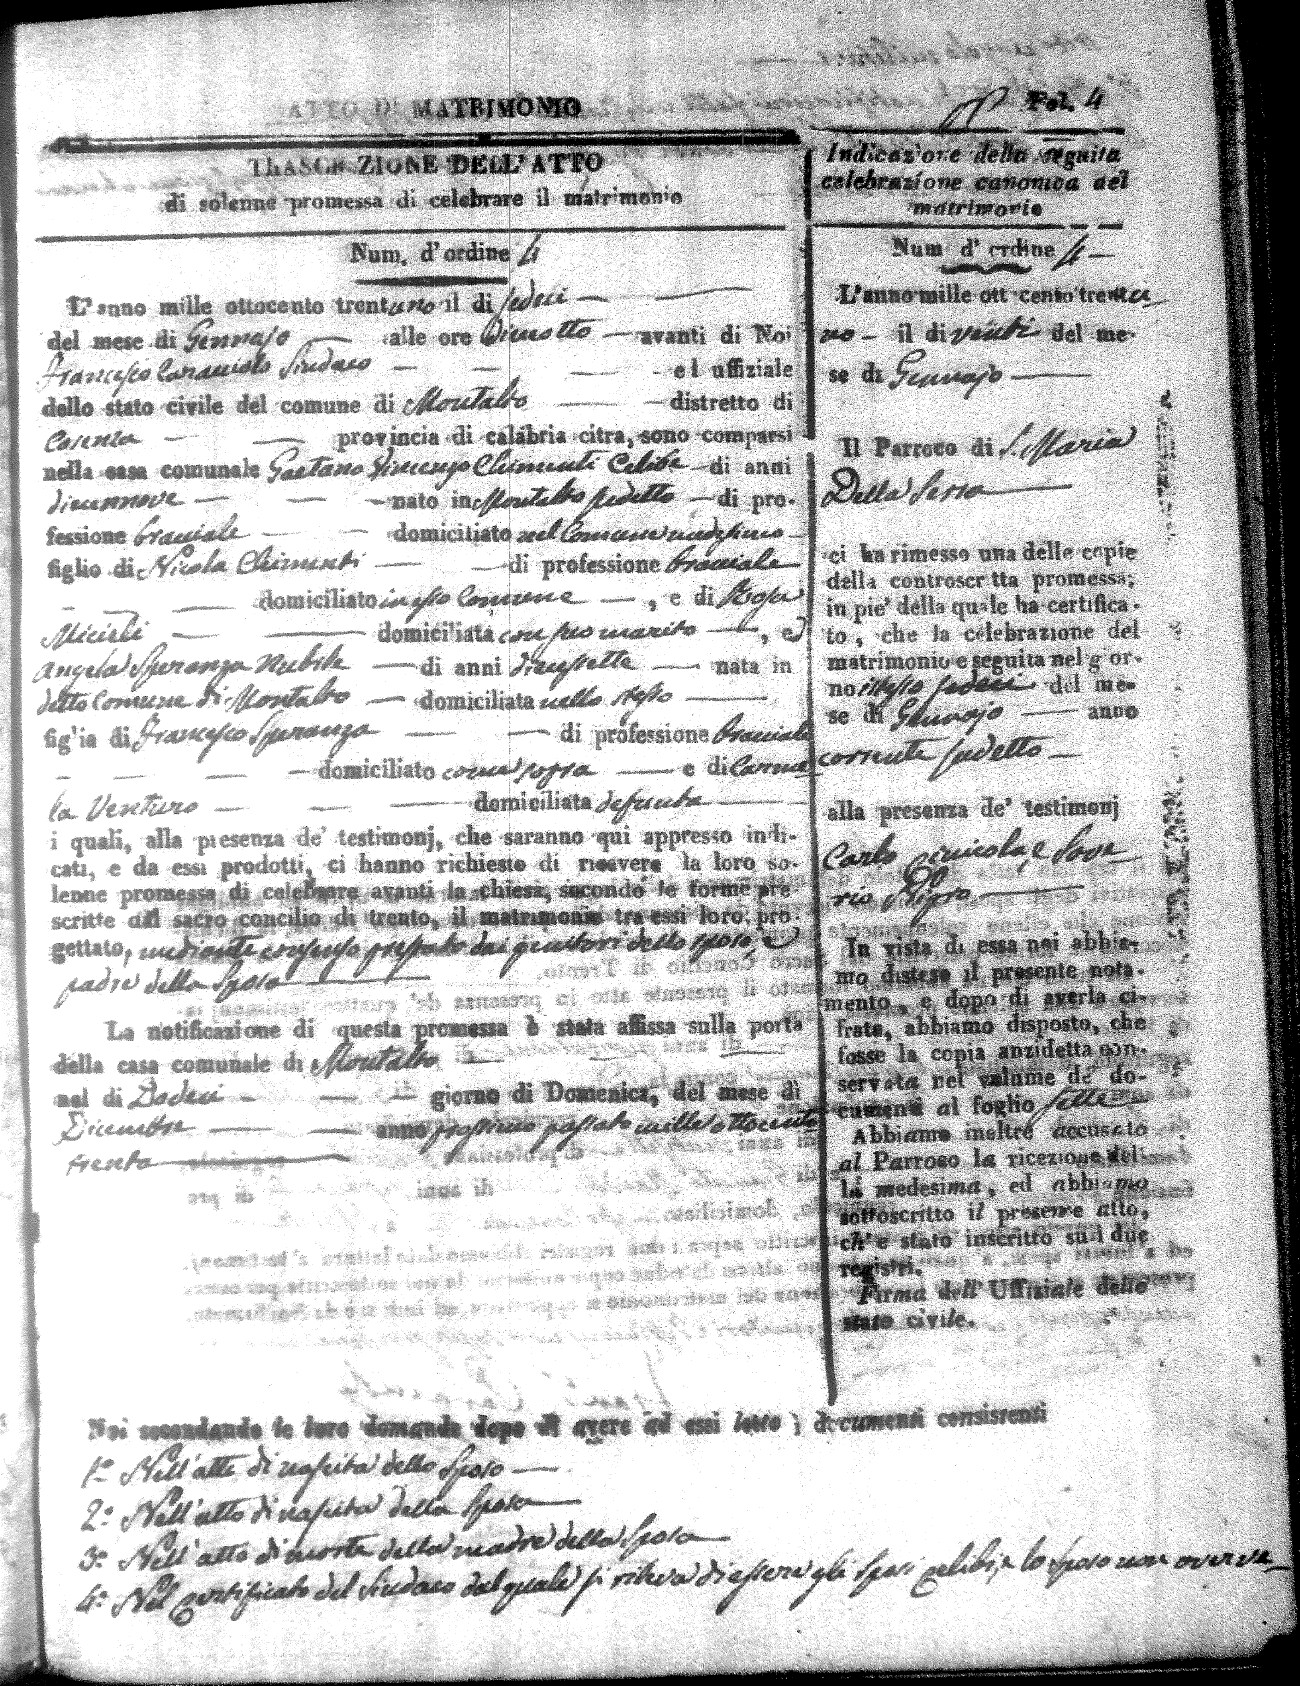 ATTO DI MATRIMONIO
Fol. 4
TRASCRIZIONE DELL'ATTO
di solenne promessa di celebrare il matrimonio
Num. d'ordine 4
L'anno mille ottocento trentuno il di sedeci
del mese di Gennajo alle ore Diciotto avanti di Noi
Francesco Caracciolo Sindaco ed uffiziale
dello stato civile del comune di Montalto distretto di
Cosenza provincia di calabria citra, sono comparsi
nella casa comunale Gaetano Vincenzo Chimenti Celibe di anni
diciannove nato in Montalto sudetto di pro-
fessione bracciale domiciliato nel Comune medesimo
figlio di Nicola Chimenti di professione bracciale
domiciliato in esso Comune, e di Rosa
Miceli domiciliata con suo marito, ed
Angela Speranza Nubile di anni diecissette nata in
detto Comune di Montalto domiciliata nello stesso
figlia di Francesco Speranza di professione bracciale
domiciliato come sopra e di Carme
la Venturo domiciliata defunta
i quali, alla presenza de' testimonj, che saranno qui appresso indi-
cati, e da essi prodotti, ci hanno richiesto di ricevere la loro so-
lenne promessa di celebrare avanti la chiesa, secondo le forme pre
scritte dal sacro concilio di trento, il matrimonio tra essi loro pro
gettato, mediante consenso prestato dai genitori dello sposo, e
padre della Sposa
La notificazione di questa promessa è stata affissa sulla porta
della casa comunale di Montalto
nel di Dodeci giorno di Domenica, del mese di
Dicembre anno prossimo passato mille ottocento
trenta
Indicazione della seguita
celebrazione canonica del
matrimonio
Num d' ordine 4
L'anno mille ottocento trentu
no il di venti del me-
se di Gennajo
Il Parroco di S. Maria
Della Serra
ci ha rimesso una delle copie
della controscritta promessa;
in pie' della quale ha certifica-
to, che la celebrazione del
matrimonio e seguita nel gior-
no istesso sedeci del me-
se di Gennajo anno
corrente sudetto
alla presenza de' testimonj
Carlo e Save
rio
In vista di essa noi abbia-
mo disteso il presente nota-
mento, e dopo di averla ci-
frata, abbiamo disposto, che
fosse la copia anzidetta con-
servata nel volume de' do-
cumenti al foglio sette
Abbiamo inoltre accusato
al Parroco la ricezione del-
la medesima, ed abbiamo
sottoscritto il presente atto,
ch' e stato inscritto su i due
registri.
Firma dell' Uffiziale dello
stato civile.
Noi secondando le loro domande dopo di avere ad essi letto i documenti consistenti
1º Nell'atto di nascita dello Sposo
2º Nell'atto di nascita della Sposa
3º Nell'atto di morte della madre della Sposa
4º Nel certificato del Sindaco dal quale si rileva di essere gli Sposi celibi, e lo sposo non aver